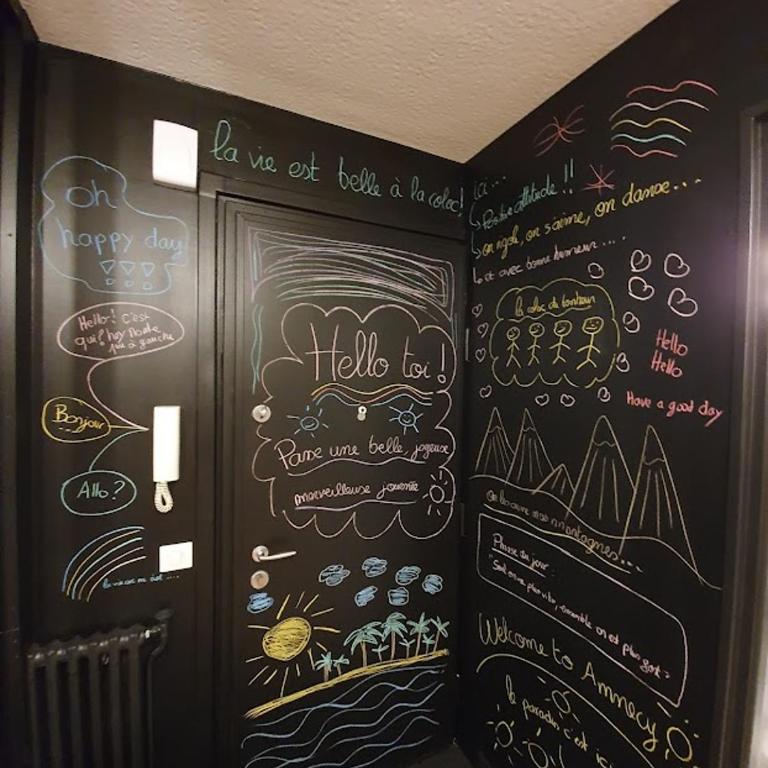 la vie est belle à la coloc!
ici...
oh
happy day
!!!
Hello! C'est
qui?
à gauche
Bonjour
Allo?
Hello toi!
Passe une belle, joyeuse
merveilleuse journée
Positive attitude!!
on rigole, on s'aime, on danse...
et avec bonne humeur....
la coloc du bonheur
Hello
Hello
Have a good day
montagnes...
Phrase du jour:
Seul on va plus vite, ensemble on est plus fort
Welcome to Annecy
le paradis c'est ici